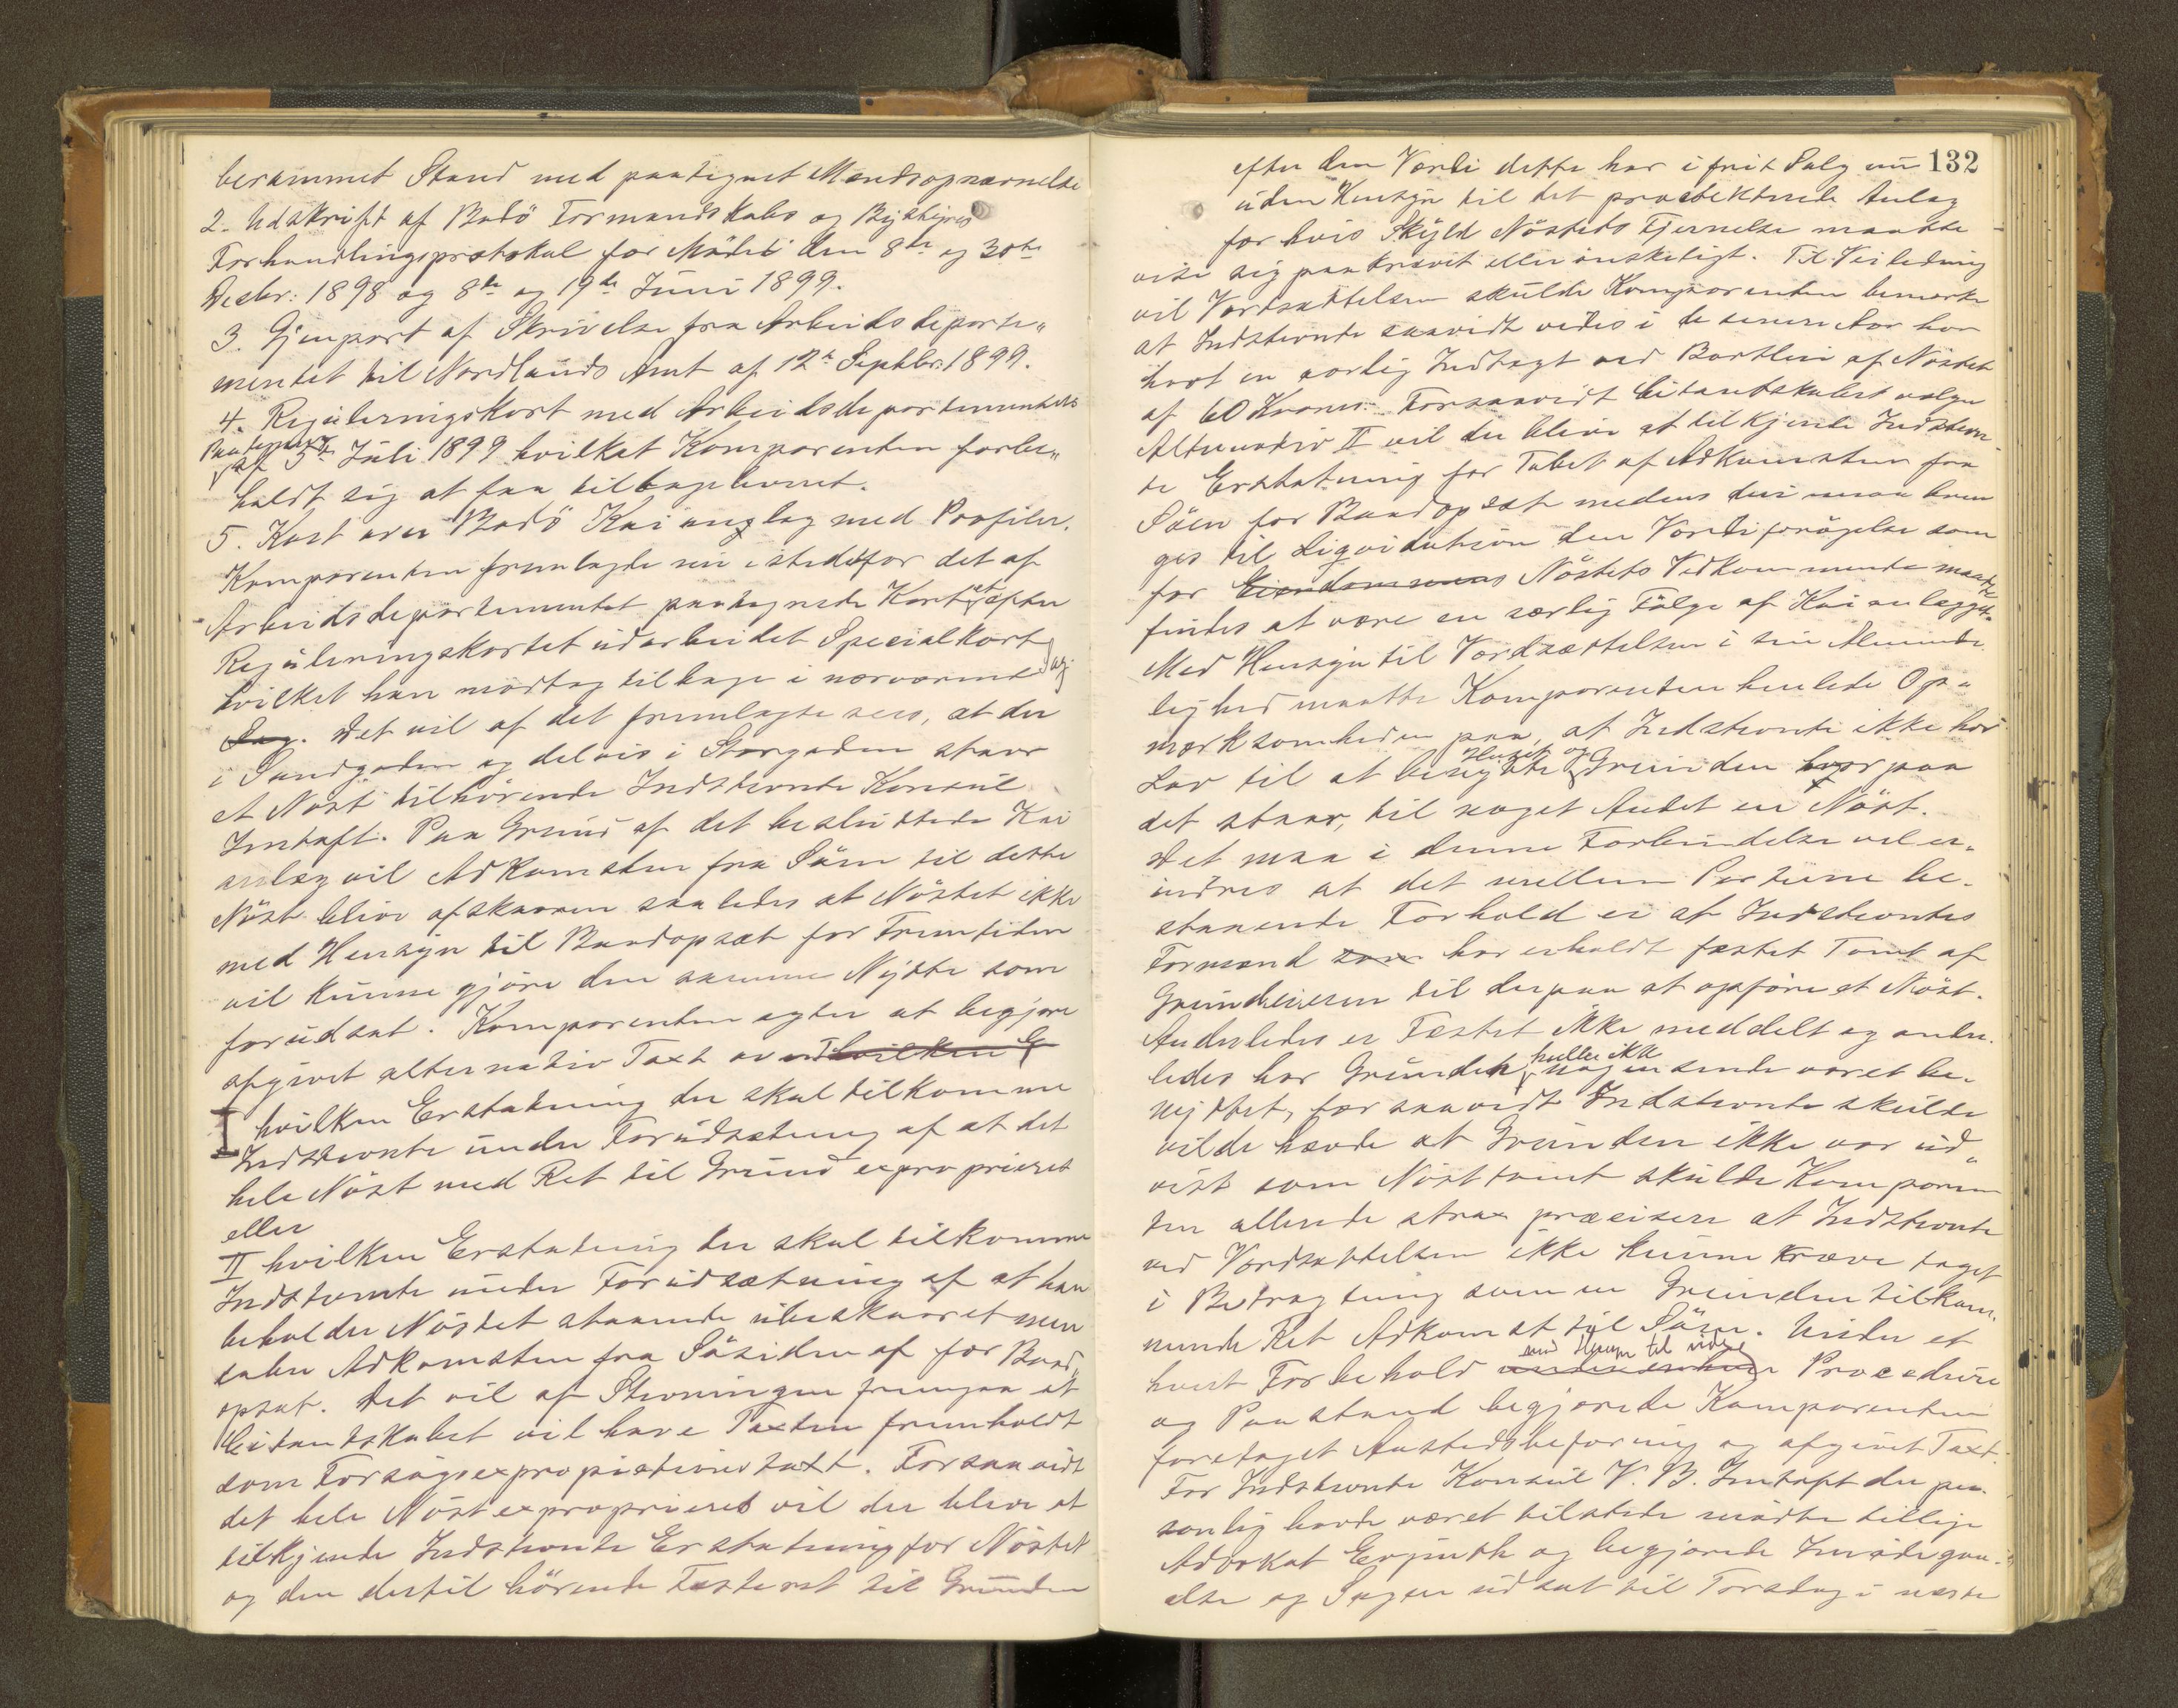 berammet Stand med paategnet Mandsopnævnelse
2. Udskrift af Bodö Formandskabs og Bystyres
Forhandlingsprotokol for Möder den 8de og 30te
Decbr: 1898 og 8de og 19de Juni 1899.
3. Gjenpart af Skrivelse fra Arbeidsdeparte„
mentet til Nordlands Amt af 12te Septbr. 1899.
4. Reguleringskart med Arbeidsdepartementets
Paategning
af 5te Juli 1899 hvilket Komparenten forbe„
holdt sig at faa tilbageleveret.
5. Kart over Bodö Kaianlæg med Profiler.
Komparenten fremlagde nu istedetfor det af
Arbeidsdepartementet paategnede Kart et efter
Reguleringskartet udarbeidet Specialkart
hvilket han modtog tilbage i nærværende
Sag. Det vil af det fremlagte sees, at der
i Sandgaden og delvis i Storgaden staar
et Nöst tilhörende Indstevnte Konsul
Jentoft. Paa Grund af det besluttede Kai
anlæg vil Adkomsten fra Söen til dette
Nöst blive afskaaren saaledes at Nöstet ikke
med Hensyn til Baadopsæt for Fremtiden
vil kunne gjöre den samme Nytte som
forudsat. Komparenten agter at begjære
afgivet alternativ Taxt over hvilken E
I hvilken Erstatning der skal tilkomme
Indstevnte under Forudsætning af at det
hele Nöst med Ret til Grund exproprieres
eller
II hvilken Erstatning der skal tilkomme
Indstevnte under Forudsætning af at han
beholder Nöstet staaende ubeskaaret men
taber Adkomsten fra Sösiden af for Baad„
opsat. Det vil af Stevningen fremgaa at
Citantskabet vil have Taxten fremholdt
som Forsögsexpropriationstaxt. Forsaavidt
det hele Nöst exproprieres vil der blive at
tilkjende Indstevnte Erstatning for Nöstet
og den dertil hörende Festeret til Grunden
132
efter den Værdi dette har i frit Salg nu
uden Hensyn til det projekterede Anlæg
for hvis Skyld Nöstets Fjernelse maatte
vise sig paakrævet eller önskeligt. Til Veiledning
ved Værdsættelsen skulde Komparenten bemerke
at Indstevnte saavidt vides i de senere Aar har
havt en aarlig Indtægt ved Bortleie af Nöstet
af 60 Kroner. Forsaavidt Citantskabet vælger
Alternativ II vil der blive at tilkjende Indstevn
te Erstatning for Tabet af Adkomsten fra
Söen for Baadopsæt medens der maa brin
ges til Liqvidation den Værdiforögelse som
for Eiendommens Nöstets Vedkommende maatte
findes at være en særlig Fölge af Kaianlægget.
Med Hensyn til Værdsættelsen i sin Alminde
lighed maatte Komparenten henlede Op„
mærksomheden paa, at Indstevnte ikke har
Lov til at benytte Huset og Grunden hvorpaa
det staar, til noget Andet en Nöst.
Det maa i denne Forbindelse vel er„
indres at det mellem Parterne be„
staaende Forhold er at Indstevntes
Formand som har erholdt fæstet Tomt af
Grundeieren til derpaa at opföre et Nöst.
Anderledes er Festet ikke meddelt og ander„
ledes har Grunden heller ikke nogensinde været be„
nyttet, for saavidt Indstevnte skulde
vilde hævde at Grunden ikke var ud„
vist som Nösttomt skulde Komparen
ten allerede strax præcisere at Indstevnte
ved Værdsættelsen ikke kunne kræve taget
i Betragtning som en Grunden tilkom„
mende Ret Adkomst til Söen. Under et
hvert Forbehold med Hensyn til videre Procedure
og Paastand begjærede Komparenten
foretaget Aastedsbefaring og afgivet Taxt.
For Indstevnte Konsul V. B. Jentoft der per„
sonlig havde været tilstede mödte tillige
Advokat Evjenth og begjærede Imödegaa„
else og Sagen udsat til Torsdag i næste